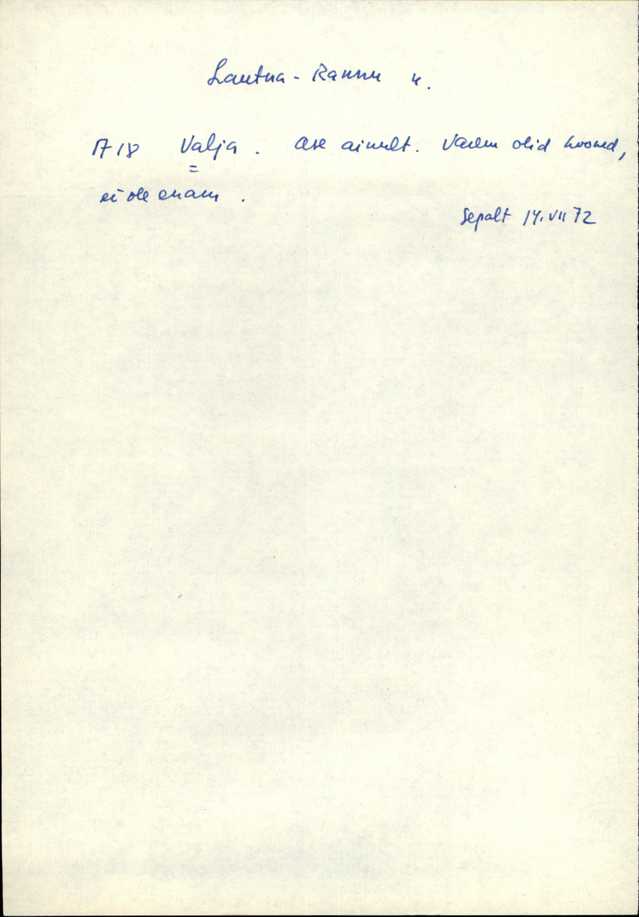 Lautna-Rannu k.
A 18 Valja. Ase ainult. Varem olid hooned,
ei ole enam.
Sepalt 14. VII 72